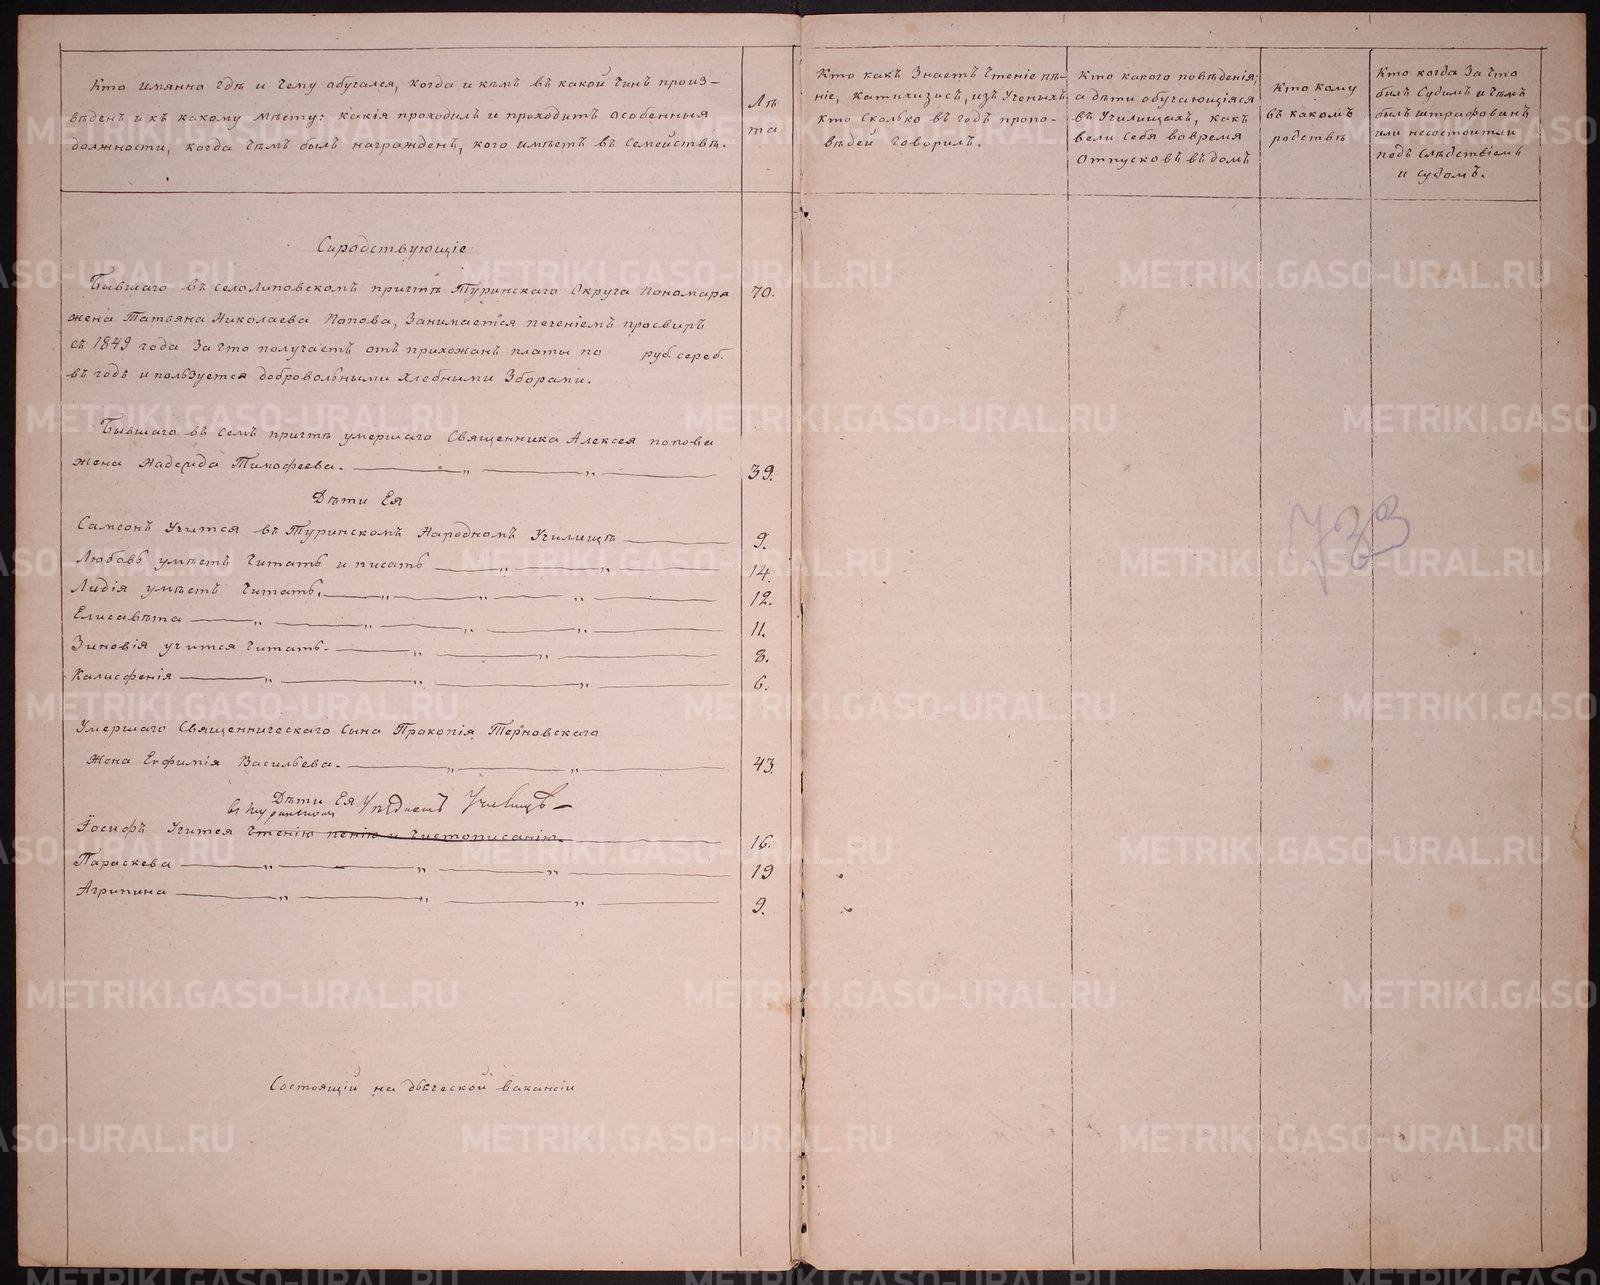 Кто имянно гдѣ и чему обучался, когда и кѣмъ въ какой чинъ произ-
вѣденъ и къ какому мѣсту: какія проходилъ и проходитъ особенныя
должности, когда чѣмъ былъ награжденъ, кого имѣетъ въ семействѣ.
Лѣ
та
Кто какъ знаетъ чтеніе пѣ-
ніе, катихизисъ, изъ ученыхъ
кто сколько въ годъ пропо-
вѣдей говорилъ.
Кто какого повѣденія;
а дѣти обучающіяся
въ училищахъ, какъ
вели себя вовремя
отпусковъ въ домъ
Кто кому
въ какомъ
родствѣ
Кто когда за что
былъ судимъ и чѣмъ
былъ штрафованъ
или несостоитъ ли
подъ слѣдствіемъ
и судомъ.
Сиродствующіе
Бывшаго въ селолиповскомъ причтѣ Туринскаго Округа Пономаря 70.
жена Татьяна Николаева Попова, занимается печеніемъ просвиръ
съ 1849 года за что получаетъ отъ прихожанъ платы по руб. сереб.
въ годъ и пользуется добровольными хлебными зборами.
Бывшаго въ семъ причтѣ умершаго Священника Алексея попова
жена Надежда Тимофеева. 39.
Дѣти Ея
Самсонъ учится въ Туринскомъ Народномъ училищѣ 9.
Любовь умѣетъ читать и писать 14.
Лидія умѣетъ читать. 12.
Елисавѣта 11.
Зиновія учится читать 8.
Калисфенія 6.
Умершаго Священническаго сына Прокопія Терновскаго
жена Евфимія Васильева. 43.
Дѣти Ея
въ Туринскомъ Уѣздномъ Училищѣ
Іосифъ учится чтенію пенію и чистописанію. 16.
Параскева 19
Агрипина 9.
Состоящій на дьяческой вакансіи
733
METRIKI.GASO-URAL.RU